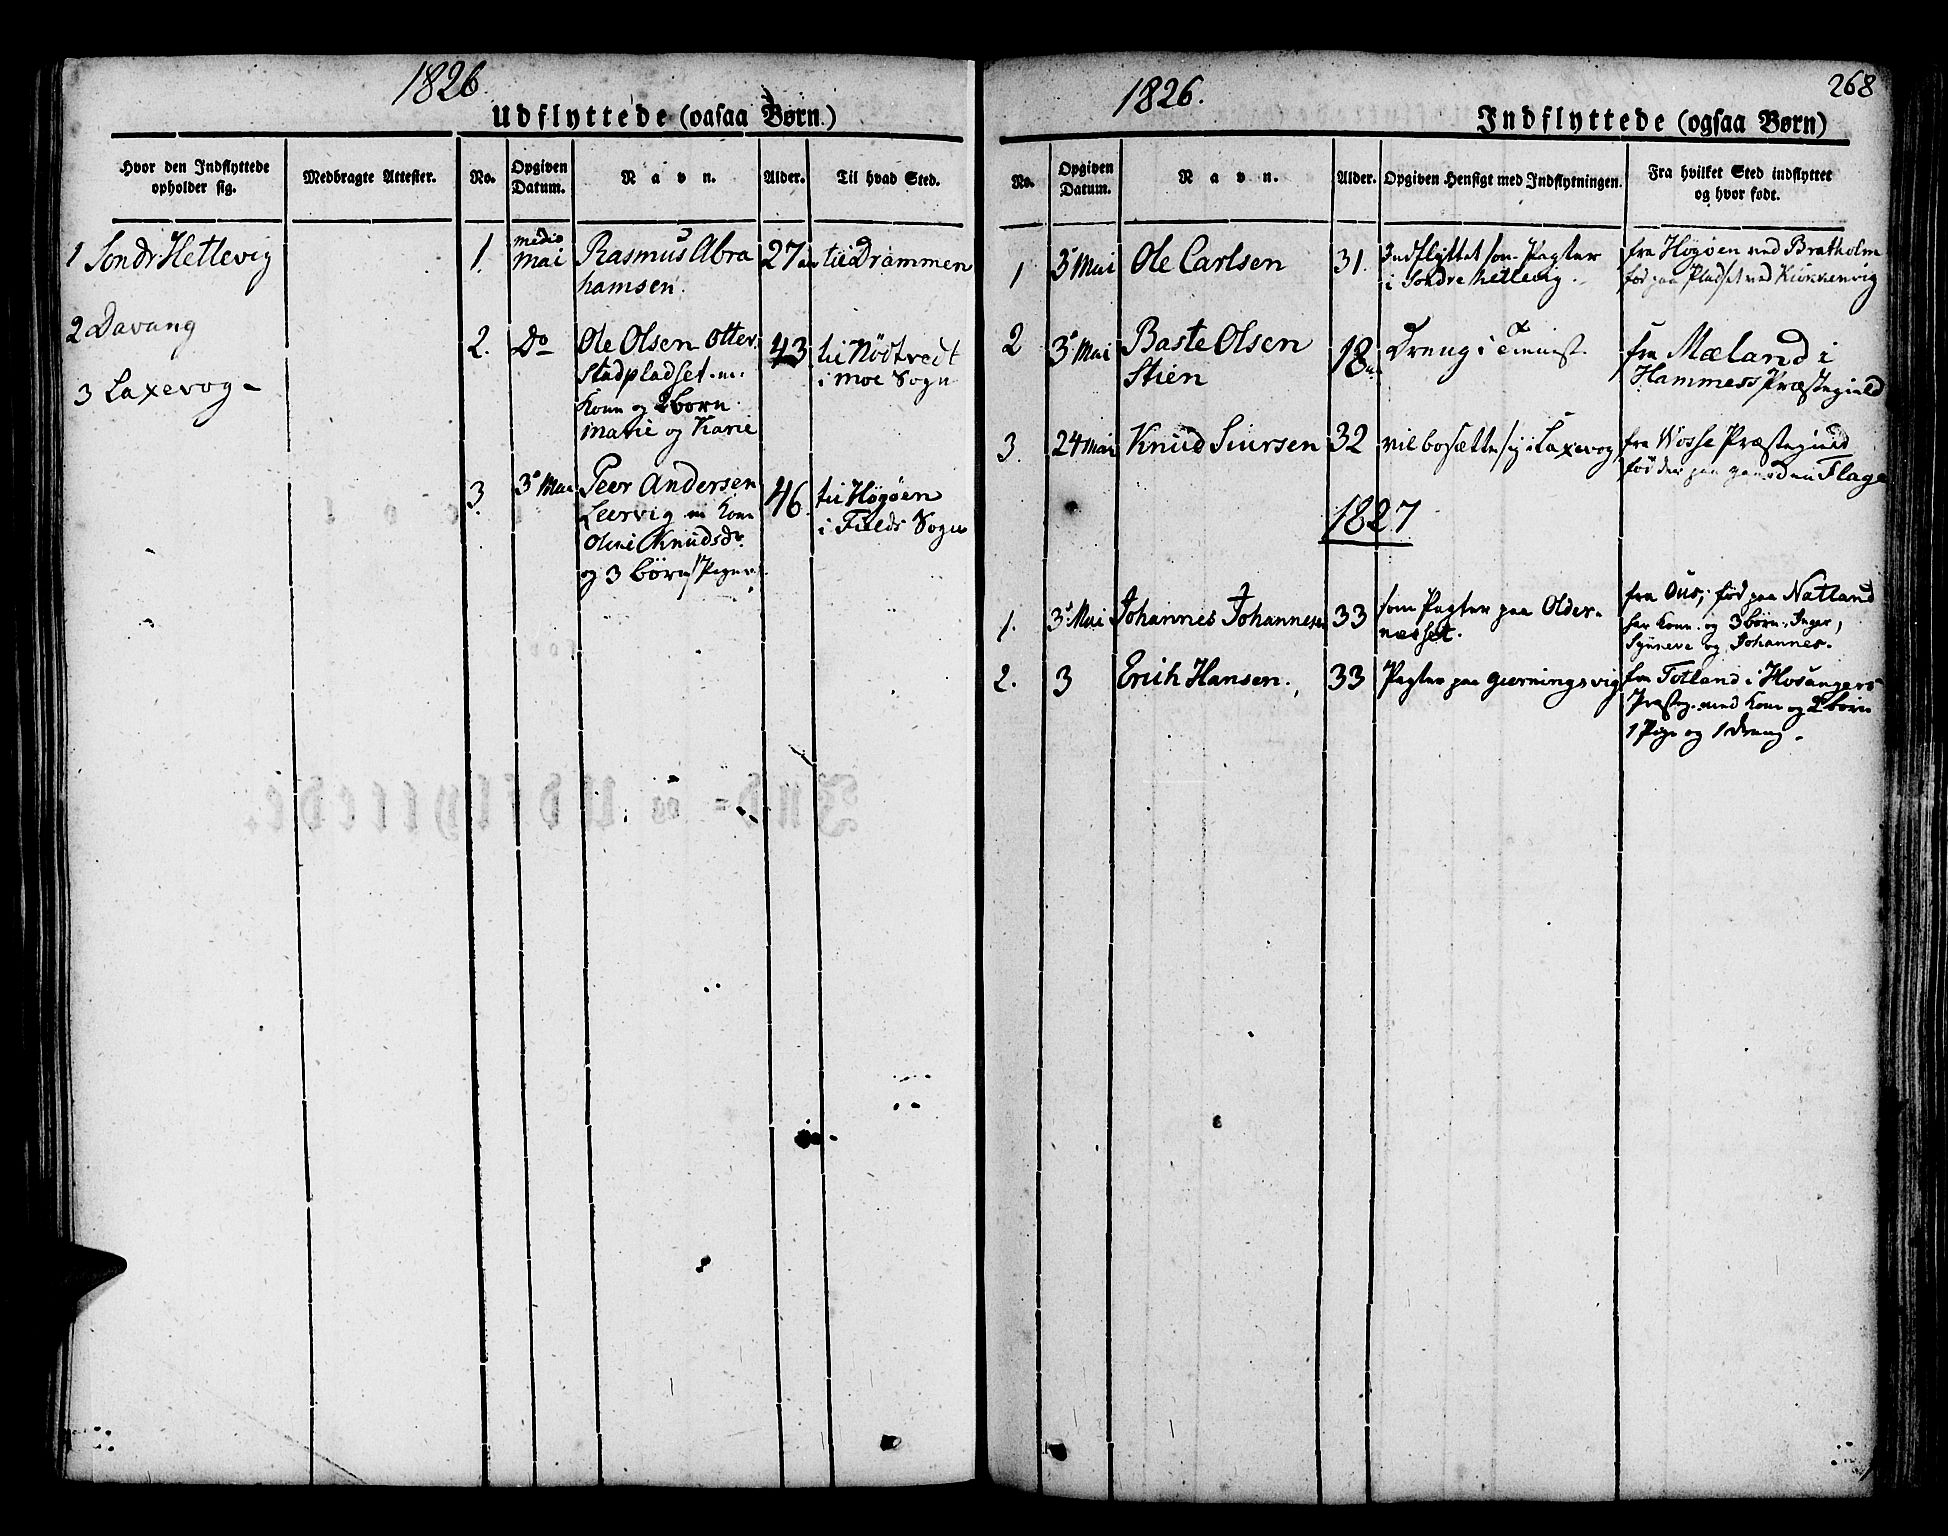 1826
Udflyttede (ogsaa Børn.)
Hvor den Indflyttede
opholder sig.
Medbragte Attester.
No.
Opgiven
Datum.
Navn.
Alder.
Til hvad Sted.
1 Sondr Hettevig
2 Davang
3 Laxevog
1. medio
mai
Rasmus Abra
hamsen.
27
til Drammen
2. Do
Ole Olsen Otter
Stadpladset m.
Kone og 2 børn
Marie og Karie
43
til Nödtvedt
i Moe Sogn
3. 3 Mai
Peer Andersen
Leervig m Kone
Oline Knudsdr.
og 3 børn Piger
46
til Högöen
i Fields Sogn
1826.
268
Indflyttede (ogsaa Børn)
No.
Opgiven
Datum.
Navn.
Alder.
Opgiven Hensigt med Indflytningen.
Fra hvilket Sted indflyttet
og hvor født.
1 3 Mai Ole Carlsen 31.
Indflyttet som Pagter
i Sondre Hettevig.
fra Högøen ved Bratholm
fød paa Pladset ved
2 3 Mai Baste Olsen
Stien
18
Dreng i Tienist.
fra Mæland i
Hammers Præstegield
3. 24 Mai Knud Siursen 32 vil bosætte sig i Laxevog
fra Wosse Præstegield
fød paa gaarden Flage
1827
1. 3 Mai Johannes Johannesen 33
som Pagter paa Older-
næsset.
fra Ous; fød paa Natland
har Kone og 3 børn, Inger,
Synneve og Johannes.
2. 3 Erich Hansen. 33 Pagter paa Gierningsvig
fra Totland i Hosangers
Præsteg. med Kone og 2 børn
1 Pige og 1 dreng.